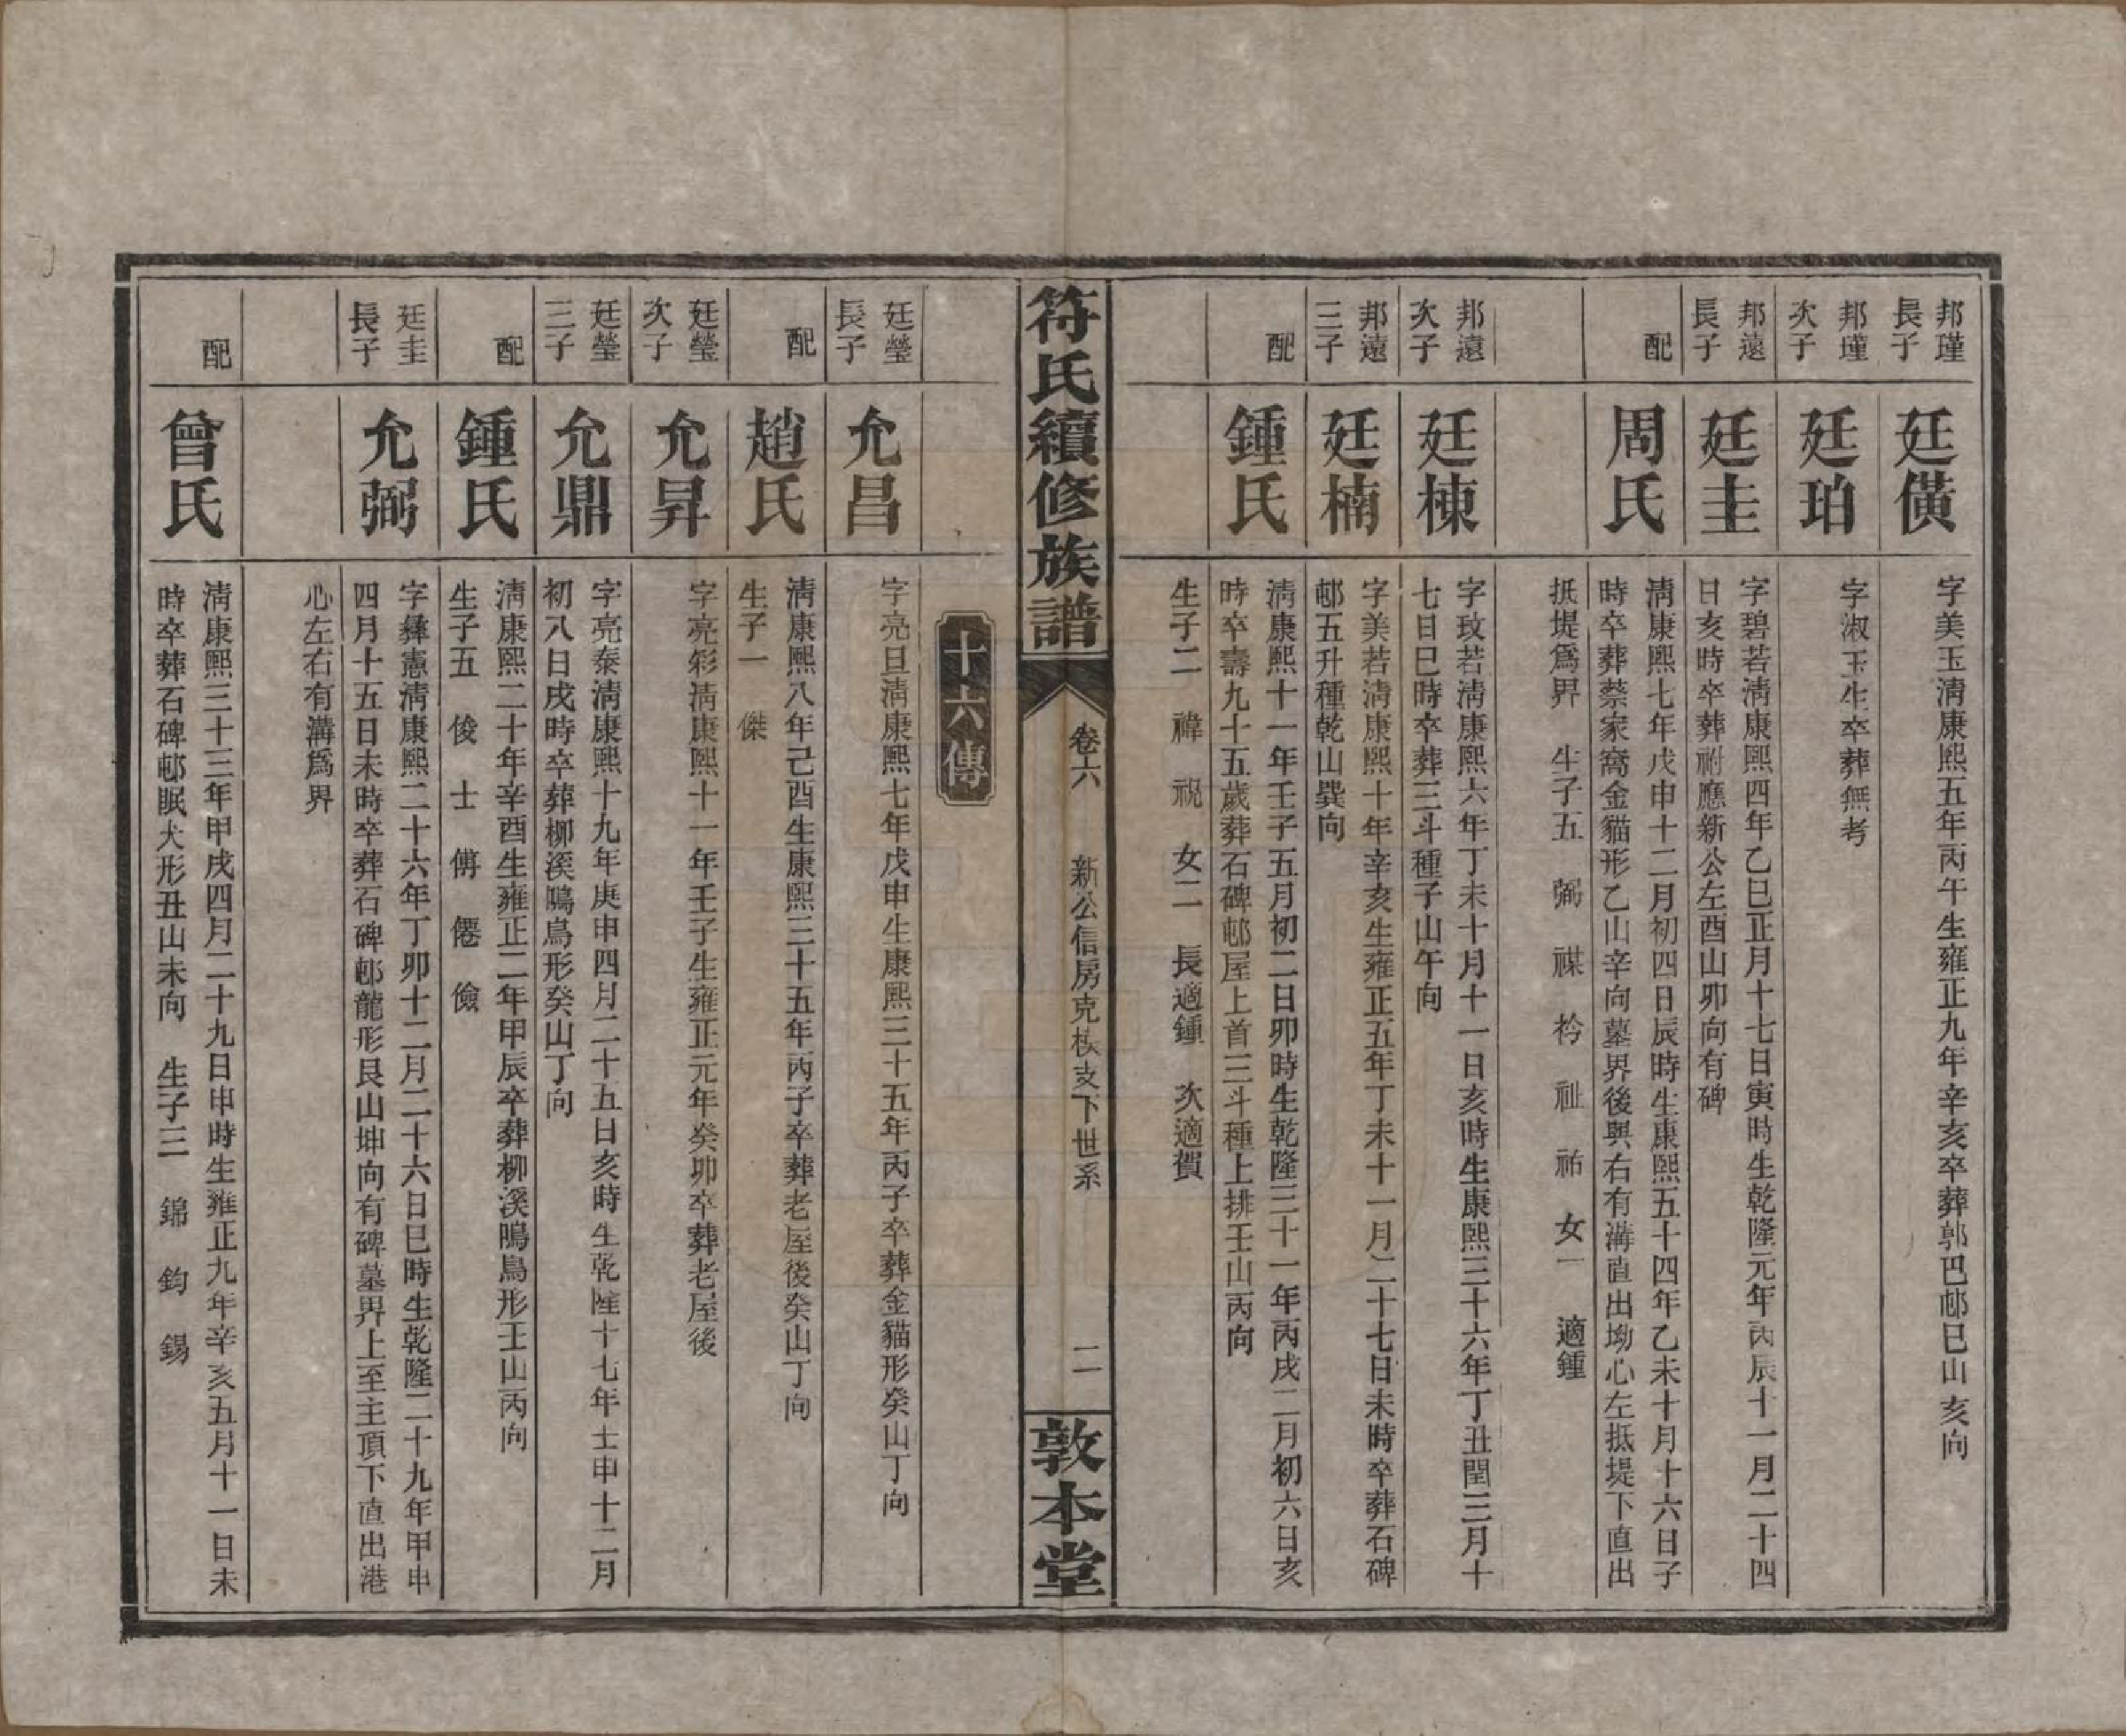 邦瑾
長子
廷僙
字美玉淸康熙五年丙午生雍正九年辛亥卒葬郭巴邨巳山亥向
邦瑾
次子
廷珀
字淑玉生卒葬無考
邦遠
長子
廷圭
字碧若淸康熙四年乙巳正月十七日寅時生乾隆元年丙辰十一月二十四
日亥時卒葬祔應新公左酉山卯向有碑
配
周氏
淸康熙七年戊申十二月初四日辰時生康熙五十四年乙未十月十六日子
時卒葬蔡家窩金貓形乙山辛向墓界後與右有溝直出坳心左抵堤下直出
抵堤爲界 生子五 弼 禖 衿 祉 祐 女一 適鍾
邦遠
次子
廷棟
字玫若淸康熙六年丁未十月十一日亥時生康熙三十六年丁丑閏三月十
七日巳時卒葬三斗種子山午向
邦遠
三子
廷楠
字美若淸康熙十年辛亥生雍正五年丁未十一月二十七日未時卒葬石碑
邨五升種乾山巽向
配
鍾氏
淸康熙十一年壬子五月初二日卯時生乾隆三十一年丙戌二月初六日亥
時卒壽九十五歲葬石碑邨屋上首三斗種上排壬山丙向
生子二 禕 祝 女二 長適鍾 次適賀
符氏續修族譜
卷六 新公信房克椟支下世系 二
敦本堂
十六傳
廷瑩
長子
允昌
字亮旦淸康熙七年戊申生康熙三十五年丙子卒葬金貓形癸山丁向
配
趙氏
淸康熙八年己酉生康熙三十五年丙子卒葬老屋後癸山丁向
生子一 傑
廷瑩
次子
允昇
字亮彩淸康熙十一年壬子生雍正元年癸卯卒葬老屋後
廷瑩
三子
允鼎
字亮泰淸康熙十九年庚申四月二十五日亥時生乾隆十七年士申十二月
初八日戌時卒葬柳溪鳴鳥形癸山丁向
配
鍾氏
淸康熙二十年辛酉生雍正二年甲辰卒葬柳溪鳴鳥形壬山丙向
生子五 俊 士 俦 僊 儉
廷圭
長子
允弼
字彝憲淸康熙二十六年丁卯十二月二十六日巳時生乾隆二十九年甲申
四月十五日未時卒葬石碑邨龍形艮山坤向有碑墓界上至主頂下直出港
心左右有溝爲界
配
曾氏
淸康熙三十三年甲戌四月二十九日申時生雍正九年辛亥五月十一日未
時卒葬石碑邨眠犬形丑山未向 生子三 錦 鈞 錫